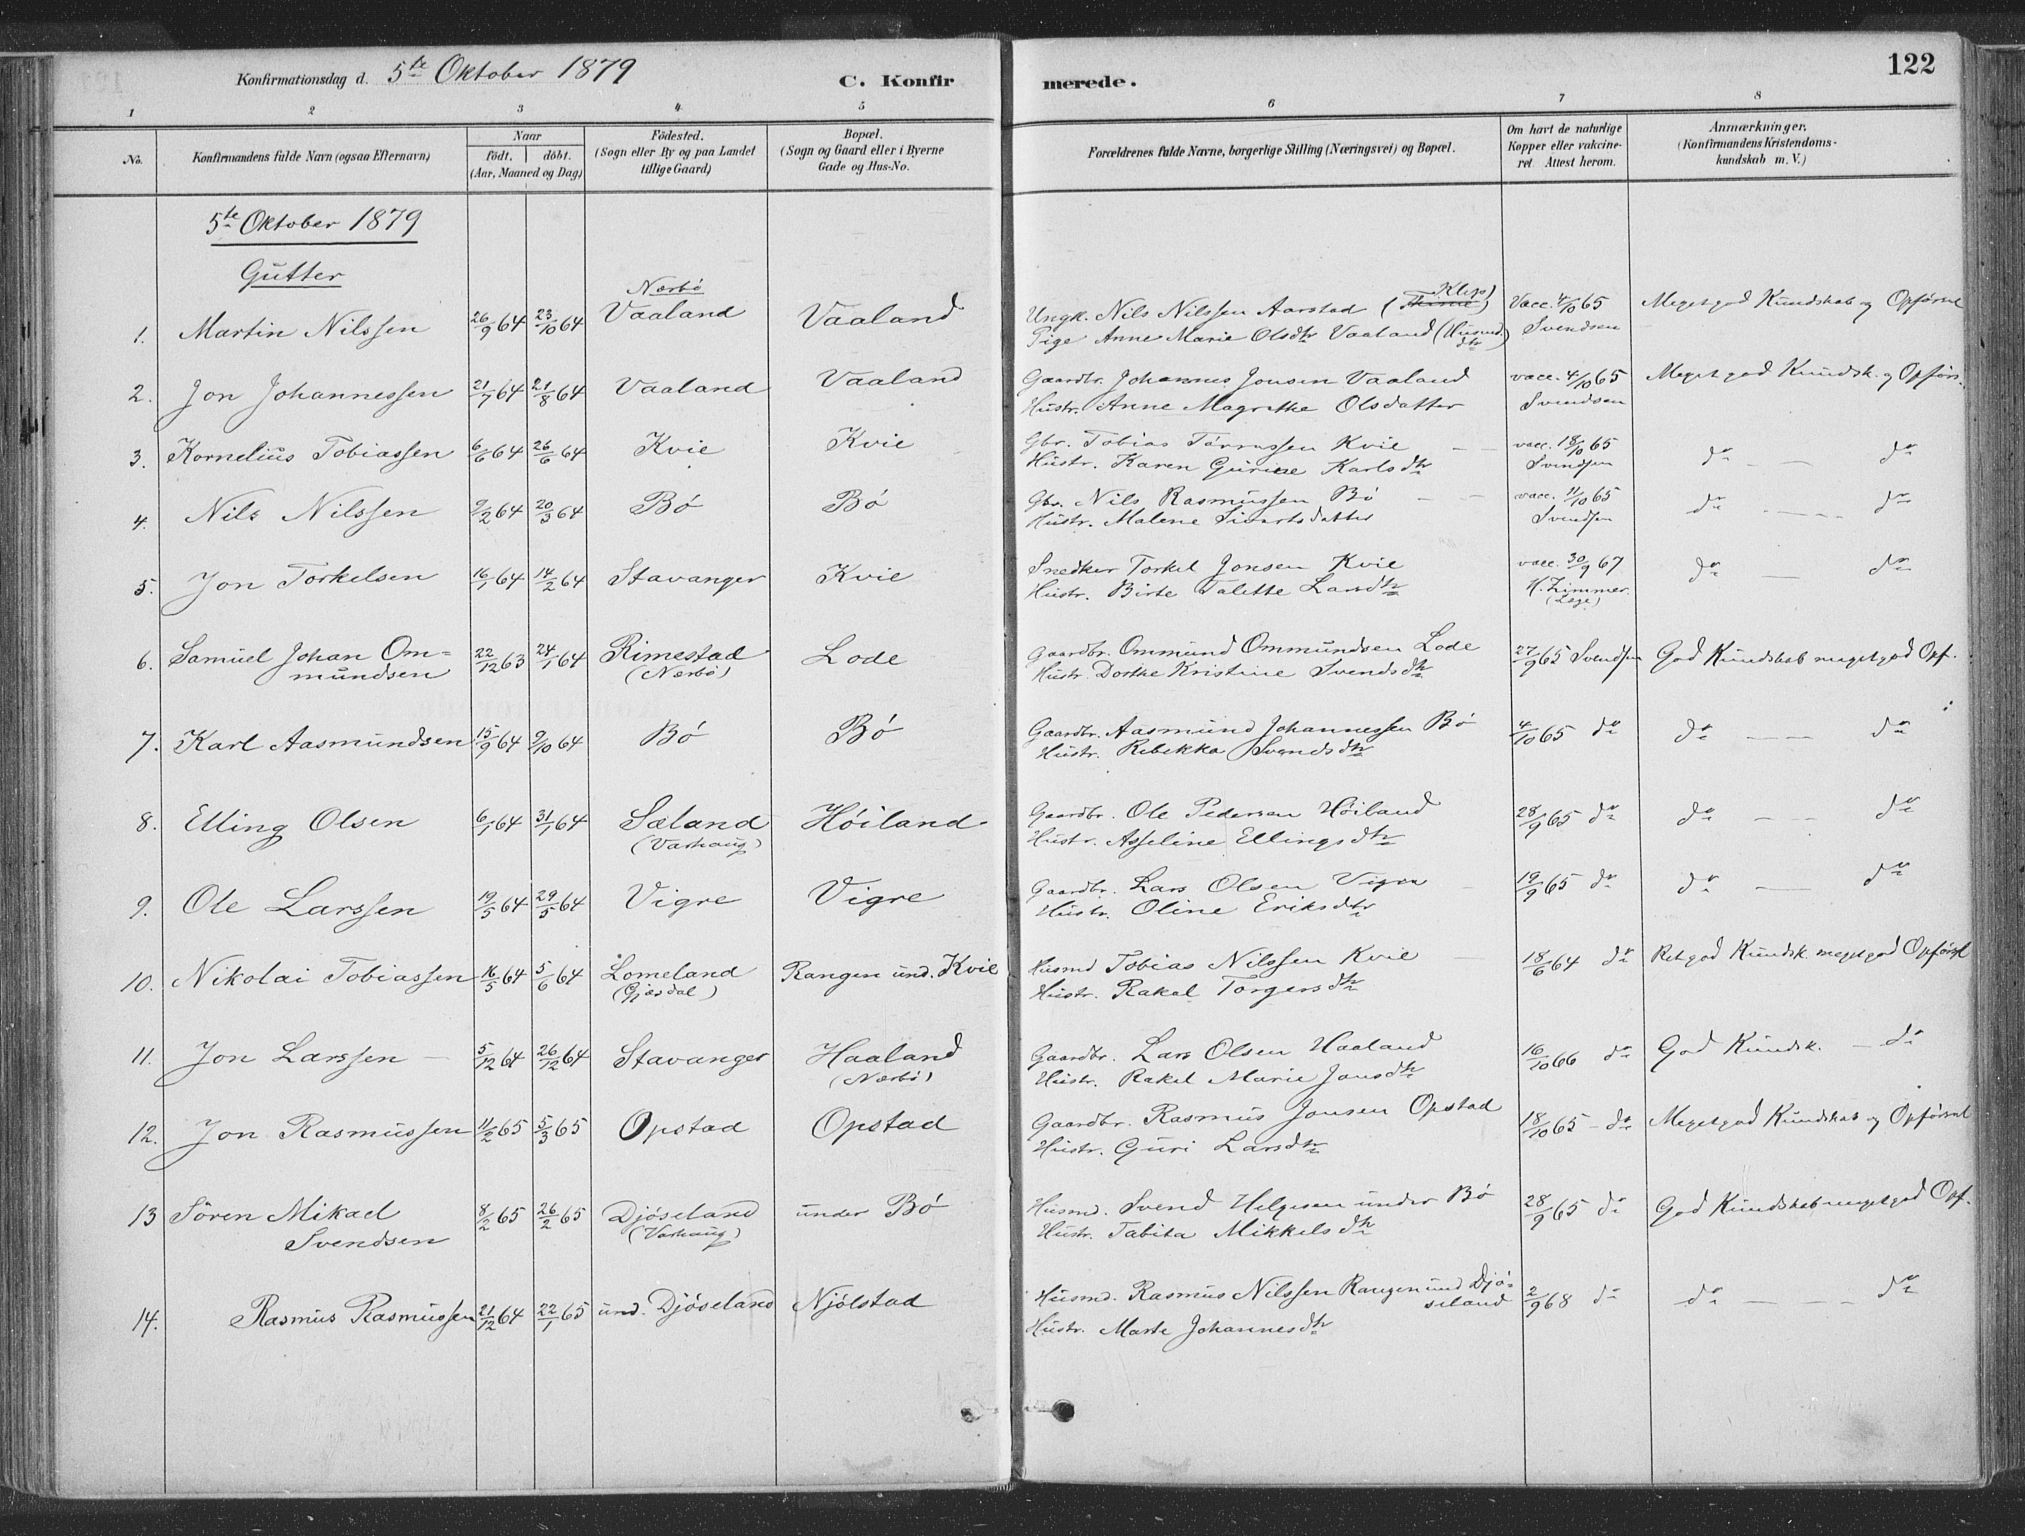 Konfirmationsdag d. 5te Oktober 1879 C. Konfirmerede. 122
1 2 3 4 5 6 7 8
No. Konfirmandens fulde Navn (ogsaa Efternavn) Naar födt. döbt. (Aar, Maaned og Dag) Födested. (Sogn eller By og paa Landet tillige Gaard) Bopæl. (Sogn og Gaard eller i Byerne Gade og Hus-No. Forældrenes fulde Navne, borgerlige Stilling (Næringsvei) og Bopæl. Om havt de naturlige Kopper eller vakcineret. Attest herom. Anmærkninger. (Konfirmandens Kristendomskundskab m. V.)
5te Oktober 1879
Gutter
1. Martin Nilssen 26/9 64 23/10 64 Nærbö Vaaland Vaaland Ungk. Nils Nilssen Aarstad (Klep) Vacc. 4/10 65 Meget god Kundskab og Opførsel
Pige Anne Marie Olsdtr Vaaland (Husmd. dtr) Svendsen
2. Jon Johannessen 21/7 64 21/8 64 Vaaland Vaaland Gaardbr. Johannes Jonsen Vaaland vacc. 4/10 65 Meget god Kundsk. og Opførs.
Hustr. Anne Magrethe Olsdatter Svendsen
3. Kornelius Tobiassen 6/6 64 26/6 64 Kvie Kvie Gbr. Tobias Törressen Kvie vacc. 18/10 65 do — do
Hustr. Karen Gurine Karlsdtr Svendsen
4. Nils Nilssen 9/2 64 20/3 64 Bö Bö Gbr. Nils Rasmussen Bö vacc. 11/10 65 do — do
Hustr. Malene Sivertsdatter Svendsen
5. Jon Torkelsen 16/1 64 14/2 64 Stavanger Kvie Snedker Torkel Jonsen Kvie vacc. 30/9 67 do — do
Hustr. Birte Talette Larsdtr H. Zimmer. (Læge)
6. Samuel Johan Om= 22/12 63 24/1 64 Rimestad Lode Gaardbr. Ommund Ommundsen Lode 27/9 65 Svendsen God Kundskab meget god Opf.
mundsen (Nærbö) Hustr. Dorthe Kristine Svendsdtr
7. Karl Aasmundsen 15/9 64 9/10 64 Bö Bö Gaardbr. Aasmund Johannessen Bö 4/10 65 do do — do
Hustr. Rebekka Svendsdtr
8. Elling Olsen 6/1 64 31/1 64 Sæland Höiland Gaardbr. Ole Pedersen Höiland 28/9 65 do do — do
(Varhaug) Hustr. Asseline Ellingsdtr
9. Ole Larssen 19/5 64 29/5 64 Vigre Vigre Gaardbr. Lars Olsen Vigre 19/9 65 do do — do
Hustr. Oline Eriksdtr
10. Nikolai Tobiassen 16/5 64 5/6 64 Lomeland Rangen und. Kvie Husmd Tobias Nilssen Kvie 18/6 64 do Ret god Kundsk. meget god Opførsl
(Gjæsdal) Hustr. Rakel Torgersdtr
11. Jon Larssen — 5/12 64 26/12 64 Stavanger Haaland Gaardbr. Lars Olsen Haaland 16/10 66 do God Kundsk. — do
(Nærbö) Hustr. Rakel Marie Jonsdtr
12. Jon Rasmussen 11/2 65 5/3 65 Opstad Opstad Gaardbr. Rasmus Jonsen Opstad 18/10 65 — do Meget god Kundskab og Opførsel
Hustr. Guri Larsdtr
13 Sören Mikael 8/2 65 26/2 65 Djöseland under Bö Husmd. Svend Helgesen under Bö 28/9 65 do God Kundskab meget god Opf.
Svendsen (Varhaug) Hustr. Tabita Mikkelsdtr
14. Rasmus Rasmussen 21/12 64 22/1 65 und. Djöseland Njölstad Husmd. Rasmus Nilssen Rangen und Djö- 2/9 68 do do — do
seland
Hustr. Marte Johannesdtr